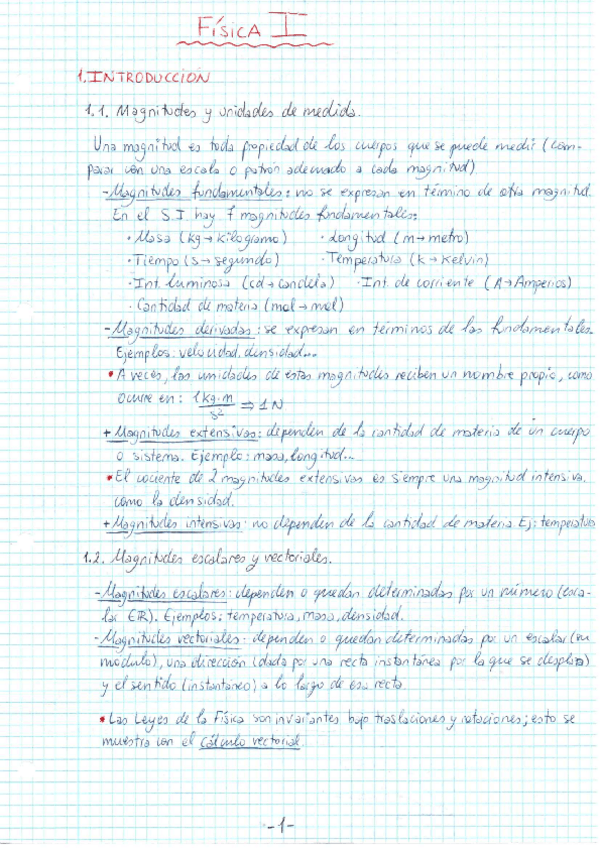 FÍSICA I
1. INTRODUCCIÓN
1.1. Magnitudes y unidades de medida.
Una magnitud es toda propiedad de los cuerpos que se puede medir (com-
parar con una escala o patrón adecuado a cada magnitud)
- Magnitudes fundamentales: no se expresan en término de otra magnitud.
En el S.I. hay 7 magnitudes fundamentales:
· Masa (kg → kilogramo) · Longitud (m → metro)
· Tiempo (s → segundo) · Temperatura (k → Kelvin)
· Int. luminosa (cd → candela) · Int. de corriente (A → Amperios)
· Cantidad de materia (mol → mol)
- Magnitudes derivadas: se expresan en términos de las fundamentales.
Ejemplos: velocidad, densidad...
* A veces, las unidades de estas magnitudes reciben un nombre propio, como
ocurre en: 1 kg·m/s² ⇒ 1 N
+ Magnitudes extensivas: dependen de la cantidad de materia de un cuerpo
o sistema. Ejemplo: masa, longitud...
* El cociente de 2 magnitudes extensivas es siempre una magnitud intensiva,
como la densidad.
+ Magnitudes intensivas: no dependen de la cantidad de materia Ej: temperatura
1.2. Magnitudes escalares y vectoriales.
- Magnitudes escalares: dependen o quedan determinadas por un número (esca-
lar ∈ℝ). Ejemplos: temperatura, masa, densidad.
- Magnitudes vectoriales: dependen o quedan determinadas por un escalar (su
módulo), una dirección (dada por una recta instantánea por la que se desplaza)
y el sentido (instantáneo) a lo largo de esa recta.
* Las Leyes de la Física son invariantes bajo traslaciones y rotaciones; esto se
muestra con el cálculo vectorial.
-1-